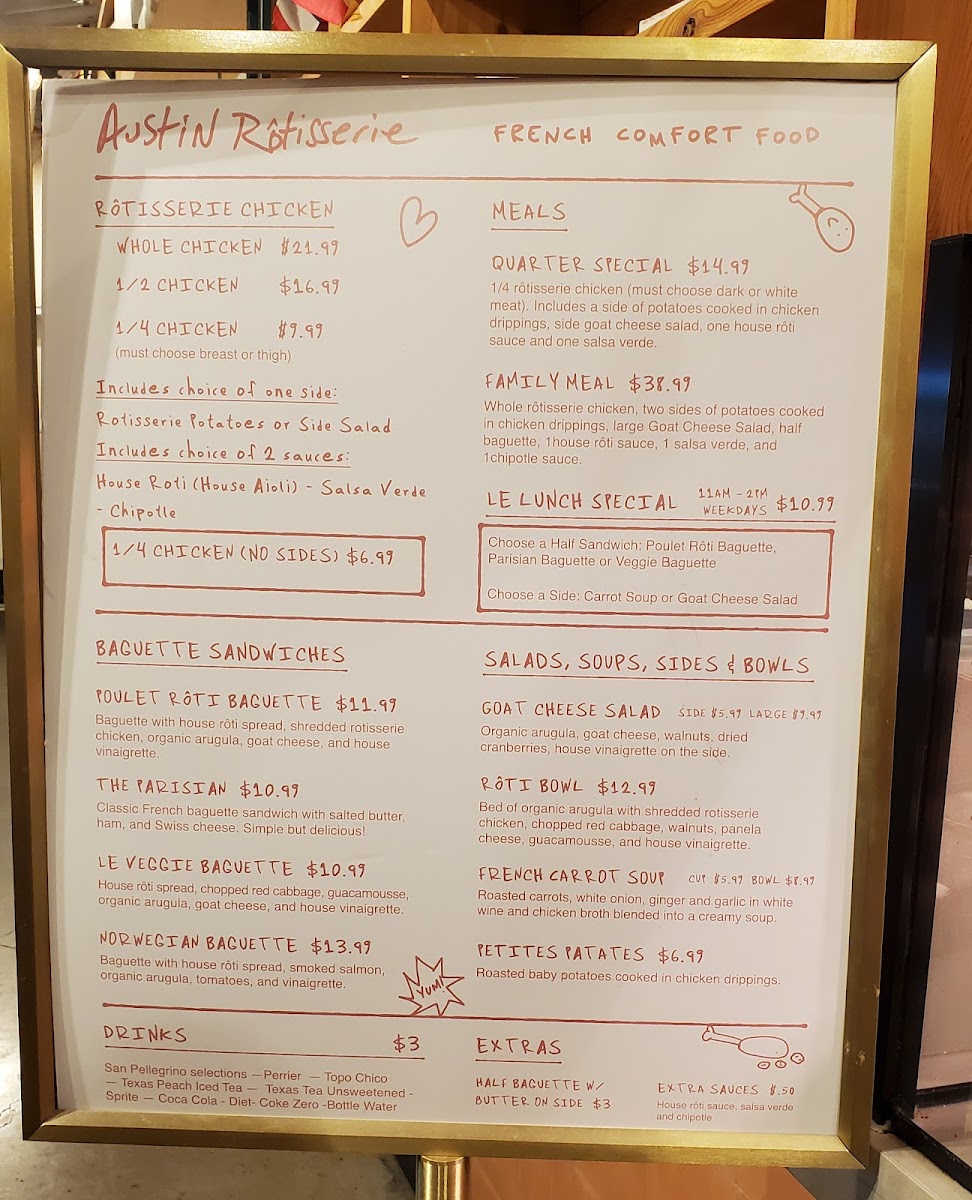 Austin Rôtisserie
FRENCH COMFORT FOOD
RÔTISSERIE CHICKEN
WHOLE CHICKEN $21.99
1/2 CHICKEN $16.99
1/4 CHICKEN $9.99
(must choose breast or thigh)
Includes choice of one side:
Rotisserie Potatoes or Side Salad
Includes choice of 2 sauces:
House Roti (House Aioli) - Salsa Verde
- Chipotle
1/4 CHICKEN (NO SIDES) $6.99
MEALS
QUARTER SPECIAL $14.99
1/4 rôtisserie chicken (must choose dark or white
meat). Includes a side of potatoes cooked in chicken
drippings, side goat cheese salad, one house rôti
sauce and one salsa verde.
FAMILY MEAL $38.99
Whole rôtisserie chicken, two sides of potatoes cooked
in chicken drippings, large Goat Cheese Salad, half
baguette, 1house rôti sauce, 1 salsa verde, and
1chipotle sauce.
LE LUNCH SPECIAL 11AM - 2PM WEEKDAYS $10.99
Choose a Half Sandwich: Poulet Rôti Baguette,
Parisian Baguette or Veggie Baguette
Choose a Side: Carrot Soup or Goat Cheese Salad
BAGUETTE SANDWICHES
POULET RÔTI BAGUETTE $11.99
Baguette with house rôti spread, shredded rotisserie
chicken, organic arugula, goat cheese, and house
vinaigrette.
THE PARISIAN $10.99
Classic French baguette sandwich with salted butter,
ham, and Swiss cheese. Simple but delicious!
LE VEGGIE BAGUETTE $10.99
House rôti spread, chopped red cabbage, guacamousse,
organic arugula, goat cheese, and house vinaigrette.
NORWEGIAN BAGUETTE $13.99
Baguette with house rôti spread, smoked salmon,
organic arugula, tomatoes, and vinaigrette.
YUM!
SALADS, SOUPS, SIDES & BOWLS
GOAT CHEESE SALAD SIDE $5.99 LARGE $9.99
Organic arugula, goat cheese, walnuts, dried
cranberries, house vinaigrette on the side.
RÔTI BOWL $12.99
Bed of organic arugula with shredded rotisserie
chicken, chopped red cabbage, walnuts, panela
cheese, guacamousse, and house vinaigrette.
FRENCH CARROT SOUP CUP $5.99 BOWL $8.99
Roasted carrots, white onion, ginger and garlic in white
wine and chicken broth blended into a creamy soup.
PETITES PATATES $6.99
Roasted baby potatoes cooked in chicken drippings.
DRINKS $3
San Pellegrino selections —Perrier — Topo Chico
— Texas Peach Iced Tea — Texas Tea Unsweetened -
Sprite — Coca Cola - Diet- Coke Zero -Bottle Water
EXTRAS
HALF BAGUETTE W/
BUTTER ON SIDE $3
EXTRA SAUCES $.50
House rôti sauce, salsa verde
and chipotle